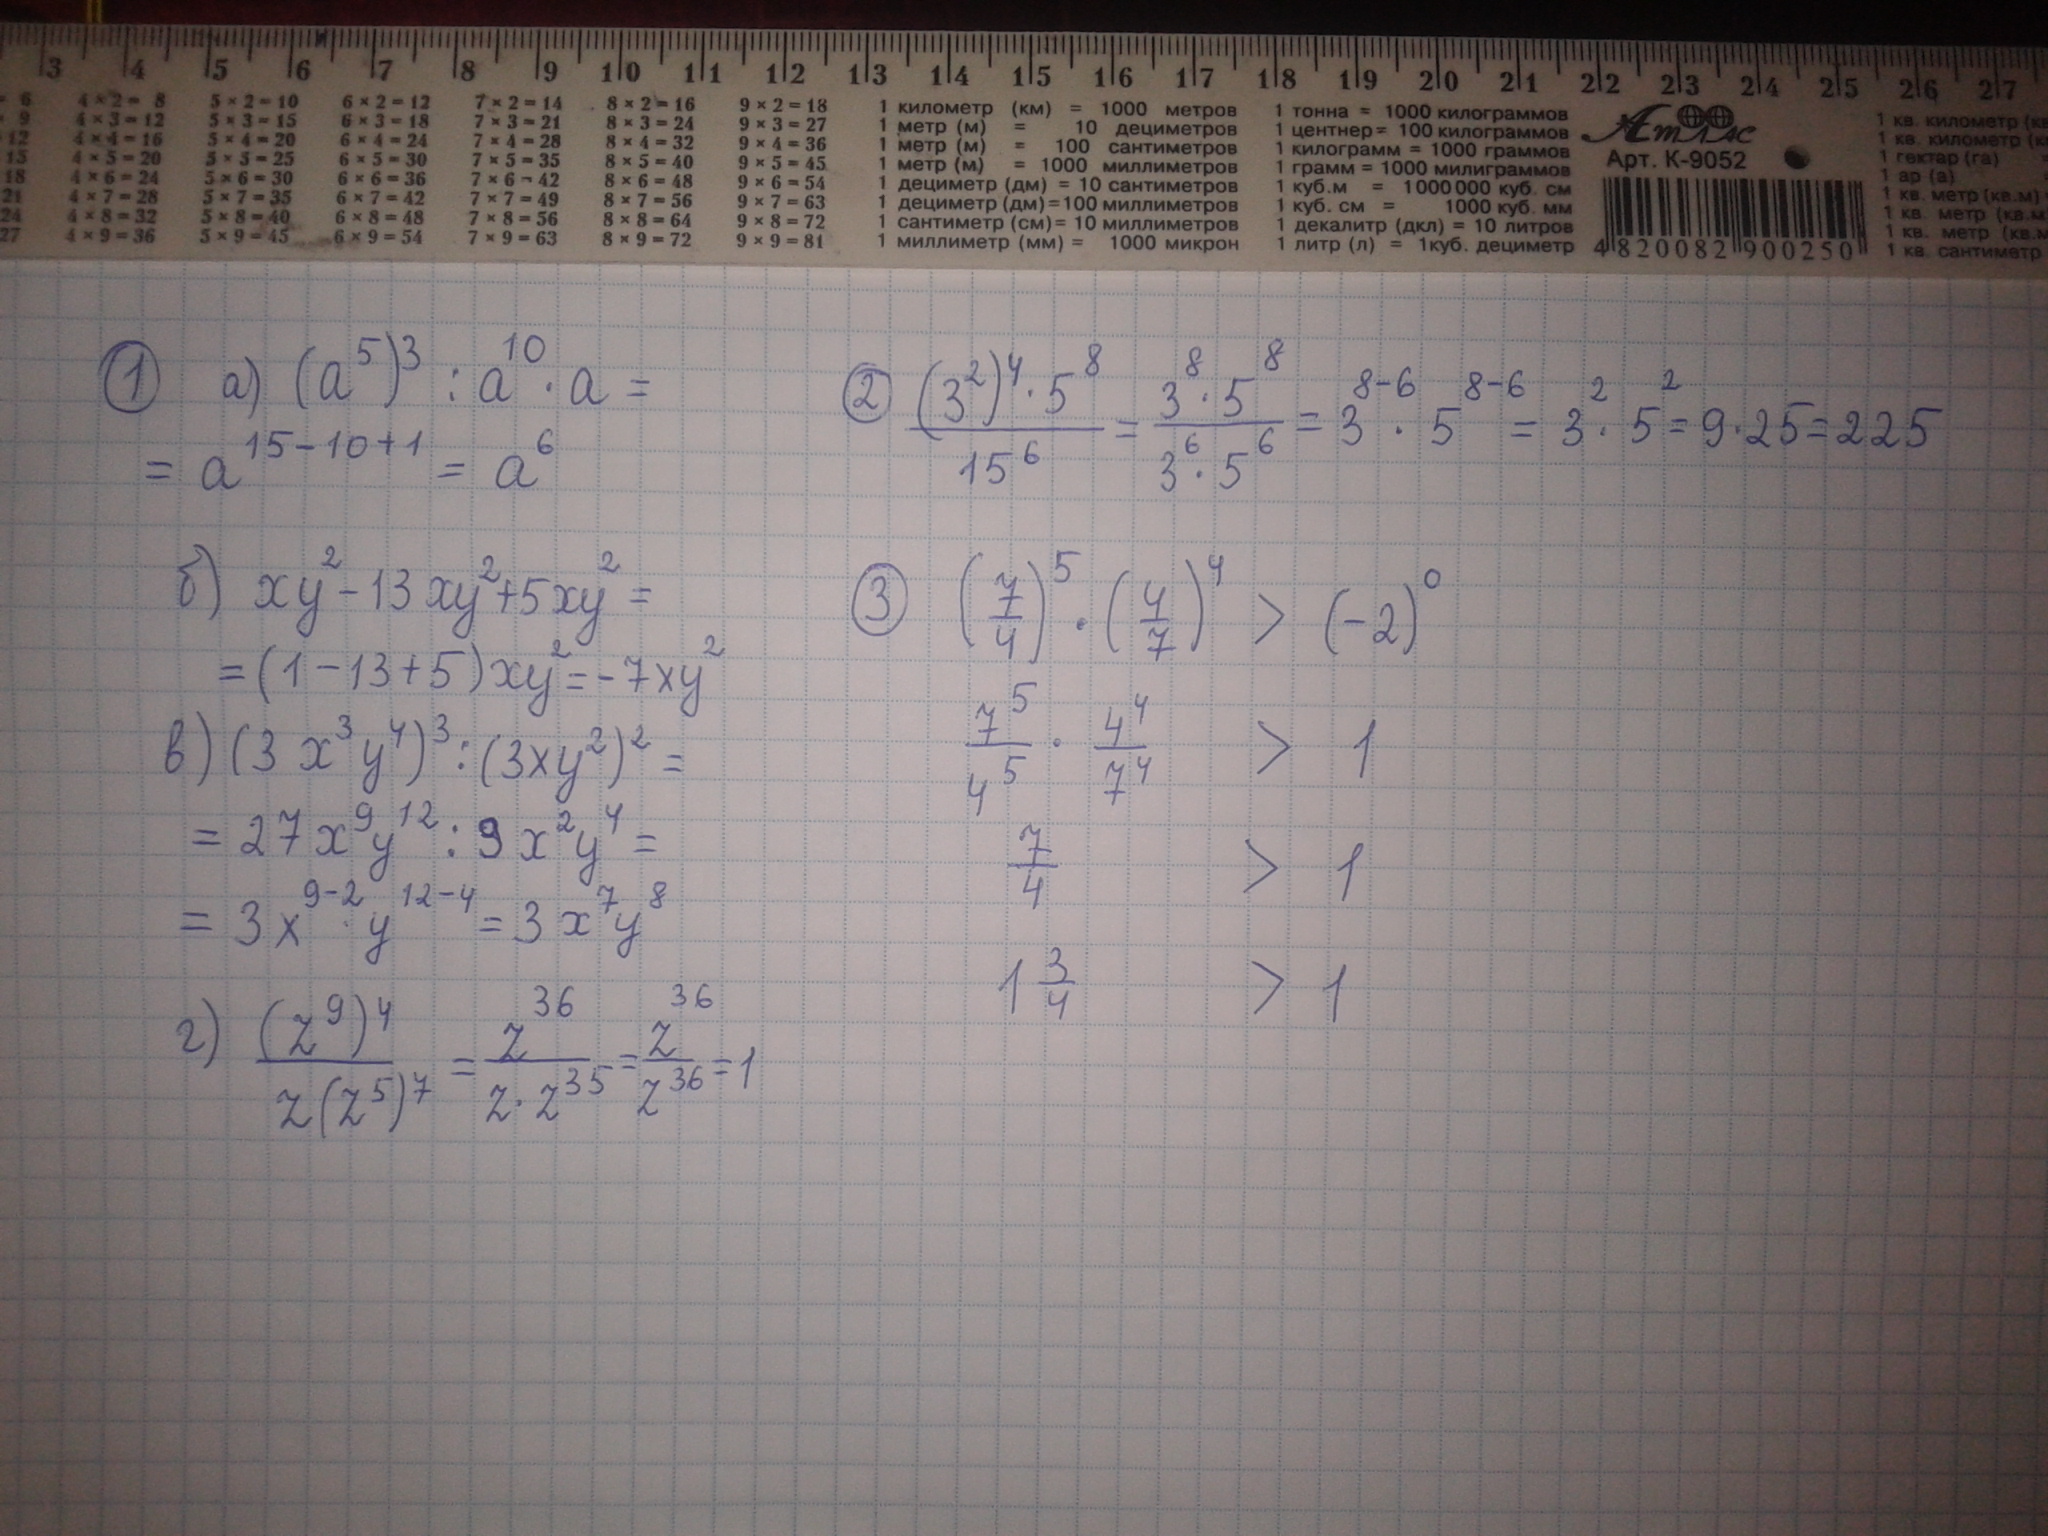 3 4 5 6 7 8 9 10 11 12 13 14 15 16 17 18 19 20 21 22 23 24 25 26 27
= 6 4 × 2 = 8 5 × 2 = 10 6 × 2 = 12 7 × 2 = 14 8 × 2 = 16 9 × 2 = 18 1 километр (км) = 1000 метров 1 тонна = 1000 килограммов
= 9 4 × 3 = 12 5 × 3 = 15 6 × 3 = 18 7 × 3 = 21 8 × 3 = 24 9 × 3 = 27 1 метр (м) = 10 дециметров 1 центнер = 100 килограммов
12 4 × 4 = 16 5 × 4 = 20 6 × 4 = 24 7 × 4 = 28 8 × 4 = 32 9 × 4 = 36 1 метр (м) = 100 сантиметров 1 килограмм = 1000 граммов
15 4 × 5 = 20 5 × 5 = 25 6 × 5 = 30 7 × 5 = 35 8 × 5 = 40 9 × 5 = 45 1 метр (м) = 1000 миллиметров 1 грамм = 1000 милиграммов
18 4 × 6 = 24 5 × 6 = 30 6 × 6 = 36 7 × 6 = 42 8 × 6 = 48 9 × 6 = 54 1 дециметр (дм) = 10 сантиметров 1 куб.м = 1000000 куб. см
21 4 × 7 = 28 5 × 7 = 35 6 × 7 = 42 7 × 7 = 49 8 × 7 = 56 9 × 7 = 63 1 дециметр (дм) = 100 миллиметров 1 куб. см = 1000 куб. мм
24 4 × 8 = 32 5 × 8 = 40 6 × 8 = 48 7 × 8 = 56 8 × 8 = 64 9 × 8 = 72 1 сантиметр (см) = 10 миллиметров 1 декалитр (дкл) = 10 литров
27 4 × 9 = 36 5 × 9 = 45 6 × 9 = 54 7 × 9 = 63 8 × 9 = 72 9 × 9 = 81 1 миллиметр (мм) = 1000 микрон 1 литр (л) = 1куб. дециметр
Атлас
Арт. К-9052
4 820082 900250
1 кв. километр (кв
1 кв. километр (к
1 гектар (га) =
1 ар (а)
1 кв. метр (кв.м) =
1 кв. метр (кв.м
1 кв. метр (кв.м
1 кв. сантиметр
① а) (a^5)^3 : a^10 · a =
= a^(15-10+1) = a^6
б) xy^2 - 13xy^2 + 5xy^2 =
= (1-13+5)xy^2 = -7xy^2
в) (3x^3y^4)^3 : (3xy^2)^2 =
= 27x^9y^12 : 9x^2y^4 =
= 3x^(9-2) · y^(12-4) = 3x^7y^8
г) (z^9)^4 / z(z^5)^7 = z^36 / z·z^35 = z^36 / z^36 = 1
② (3^2)^4 · 5^8 / 15^6 = 3^8 · 5^8 / 3^6 · 5^6 = 3^(8-6) · 5^(8-6) = 3^2 · 5^2 = 9·25 = 225
③ (7/4)^5 · (4/7)^4 > (-2)^0
7^5/4^5 · 4^4/7^4 > 1
7/4 > 1
1 3/4 > 1